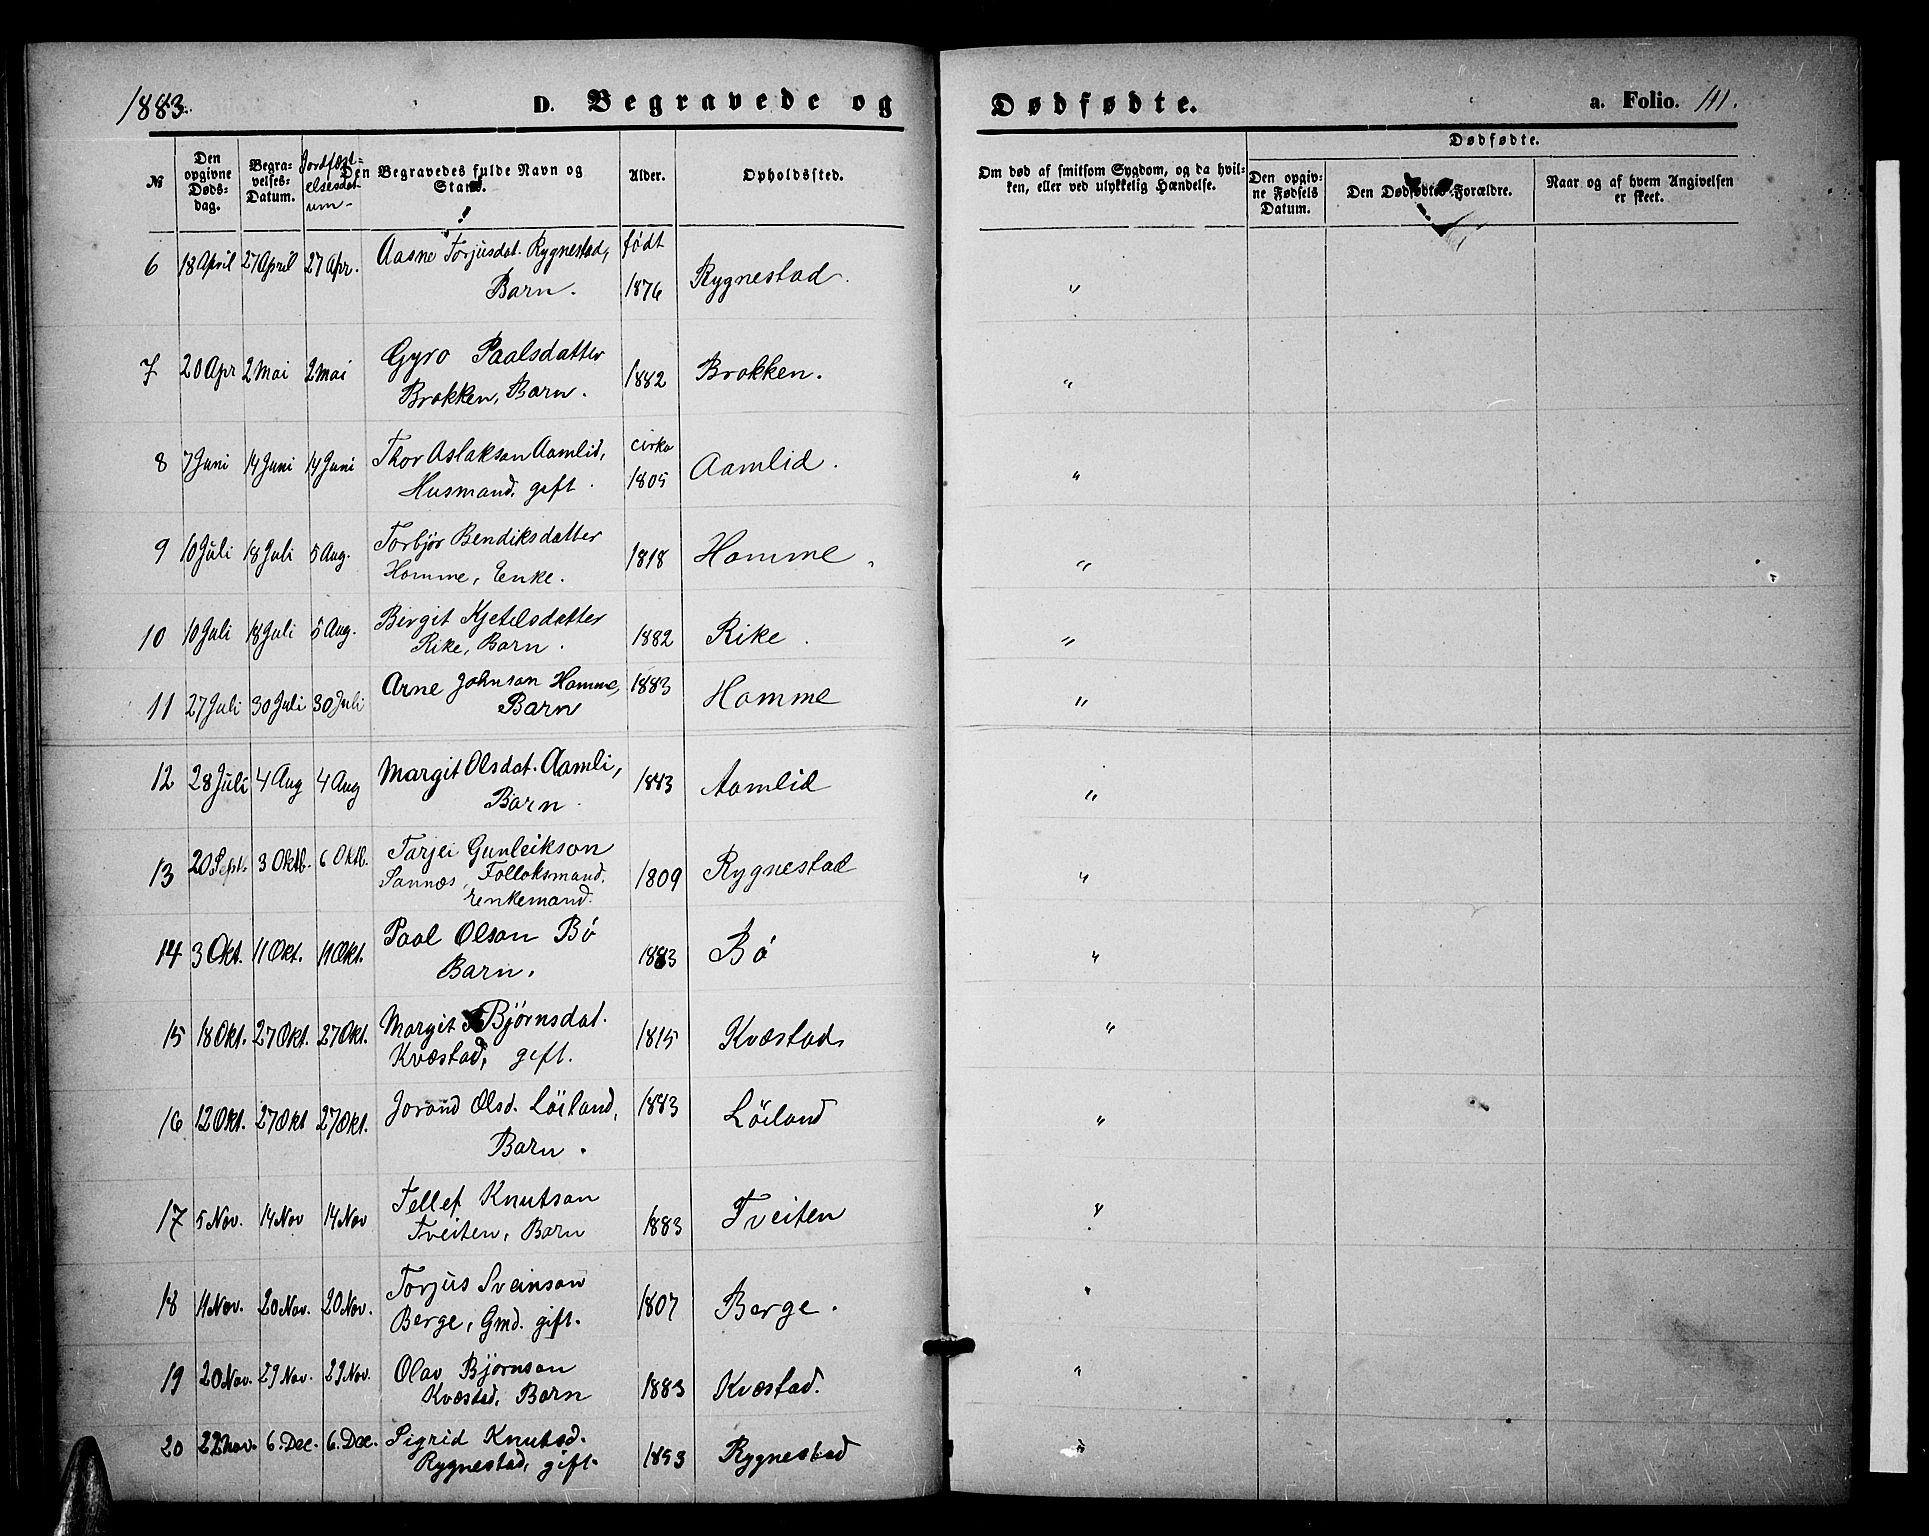 1883.
D. Begravede og Dødfødte.
a. Folio. 141.
№
Den opgivne Døds-dag.
Begra-velses-Datum.
Jordfæst-elsesdatum-
Den Begravedes fulde Navn og Stand.
Alder.
Opholdssted.
Om død af smitsom Sygdom, og da hvil-ken, eller ved ulykkelig Hændelse.
Dødfødte.
Den opgiv-ne Fødsels Datum.
Den Dødfødtes Forældre.
Naar og af hvem Angivelsen er skeet.
6 18 April 27 April 27 Apr. Aasne Torjusdat. Rygnestad, født
Barn. 1876 Rygnestad. "
7 20 Apr 2 Mai 2 Mai Gyro Paalsdatter
Brokken, Barn. 1882 Brokken. "
8 7 Juni 14 Juni 14 Juni Thor Aslakson Aamlid, cirka
Husmand, gift. 1805 Aamlid. "
9 10 Juli 18 Juli 5 Aug. Torbjør Bendiksdatter
Homme, Enke. 1818 Homme. "
10 10 Juli 18 Juli 5 Aug. Birgit Kjetilsdatter
Rike, Barn. 1882 Rike. "
11 27 Juli 30 Juli 30 Juli Arne Johnson Homme, 1883 Homme "
Barn
12 28 Juli 4 Aug 4 Aug Margit Olsdat. Aamli, 1883 Aamlid "
Barn.
13 20 Sept. 3 Oktb. 6 Oktb. Tarjei Gunleikson
Sannæs, Folloksmand, 1809 Rygnestad "
Enkemand.
14 3 Okt. 11 Okt. 11 Okt. Paal Olson Bø
Barn. 1883 Bø "
15 18 Okt. 27 Okt. 27 Okt. Margit Bjørnsdat.
Kvæstad, gift. 1815 Kvæstad "
16 12 Okt. 27 Okt 27 Okt. Jorand Olsd. Løiland, 1883 Løiland "
Barn.
17 5 Nov. 14 Nov 14 Nov Tellef Knutson
Tveiten, Barn 1883 Tveiten "
18 11 Nov. 20 Nov. 20 Nov. Torjus Sveinson
Berge, Gmd. gift. 1807 Berge. "
19 20 Nov. 29 Nov. 29 Nov. Olav Bjørnson
Kvæstad, Barn 1883 Kvæstad. "
20 22 Nov. 6. Dec. 6. Dec. Sigrid Knutsd.
Rygnestad, gift. 1853 Rygnestad "